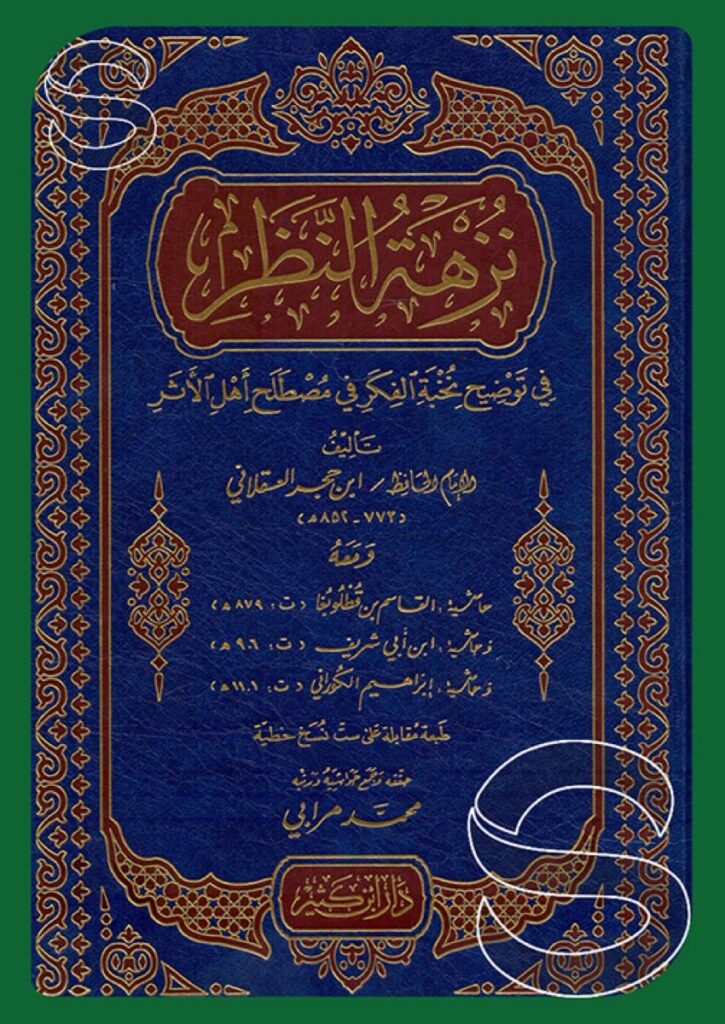 نُزْهَةُ النَّظَرِ
فِي تَوْضِيحِ نُخْبَةِ الفِكَرِ فِي مُصْطَلَحِ أَهْلِ الأَثَرِ
تَأْلِيفُ
الإمام الحافظ / ابن حجر العسقلاني
(٧٧٣ - ٨٥٢ هـ)
وَمَعَهُ
حاشية : القاسم بن قُطْلُوبُغَا (ت : ٨٧٩ هـ)
وحاشية : ابن أبي شريف (ت : ٩٠٦ هـ)
وحاشية : إبراهيم الكُوراني (ت : ١١٠١ هـ)
طبعة مُقابلة على ستّ نُسَخ خطية
حققه وجمع حواشيه ورتبه
محمد مرابي
دَارُ ابْنِ كَثِيرٍ
S
S